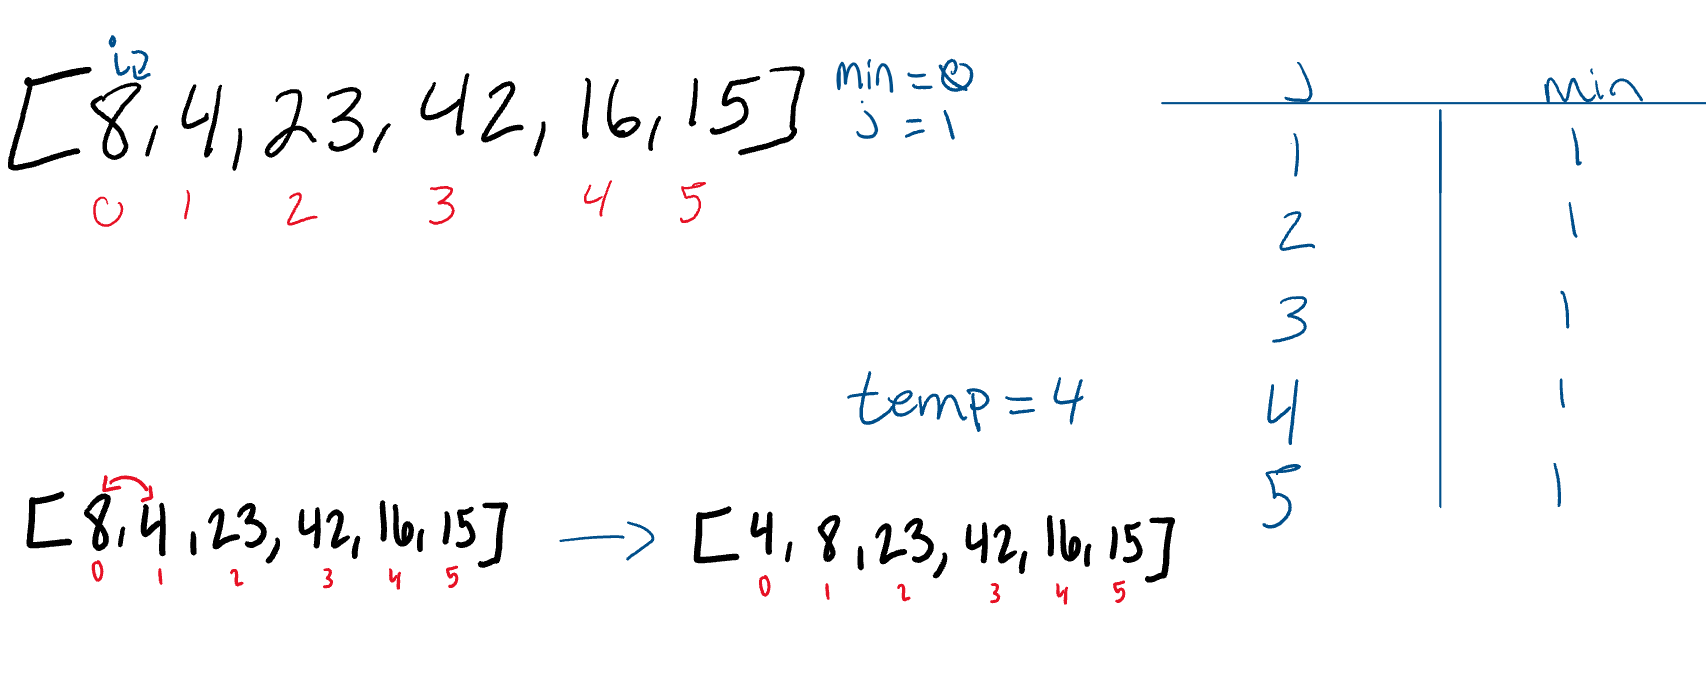 i
[8, 4, 23, 42, 16, 15]
0 1 2 3 4 5
min = 0
j = 1
j min
1 1
2 1
3 1
4 1
5 1
temp = 4
[8, 4, 23, 42, 16, 15]
0 1 2 3 4 5
[4, 8, 23, 42, 16, 15]
0 1 2 3 4 5